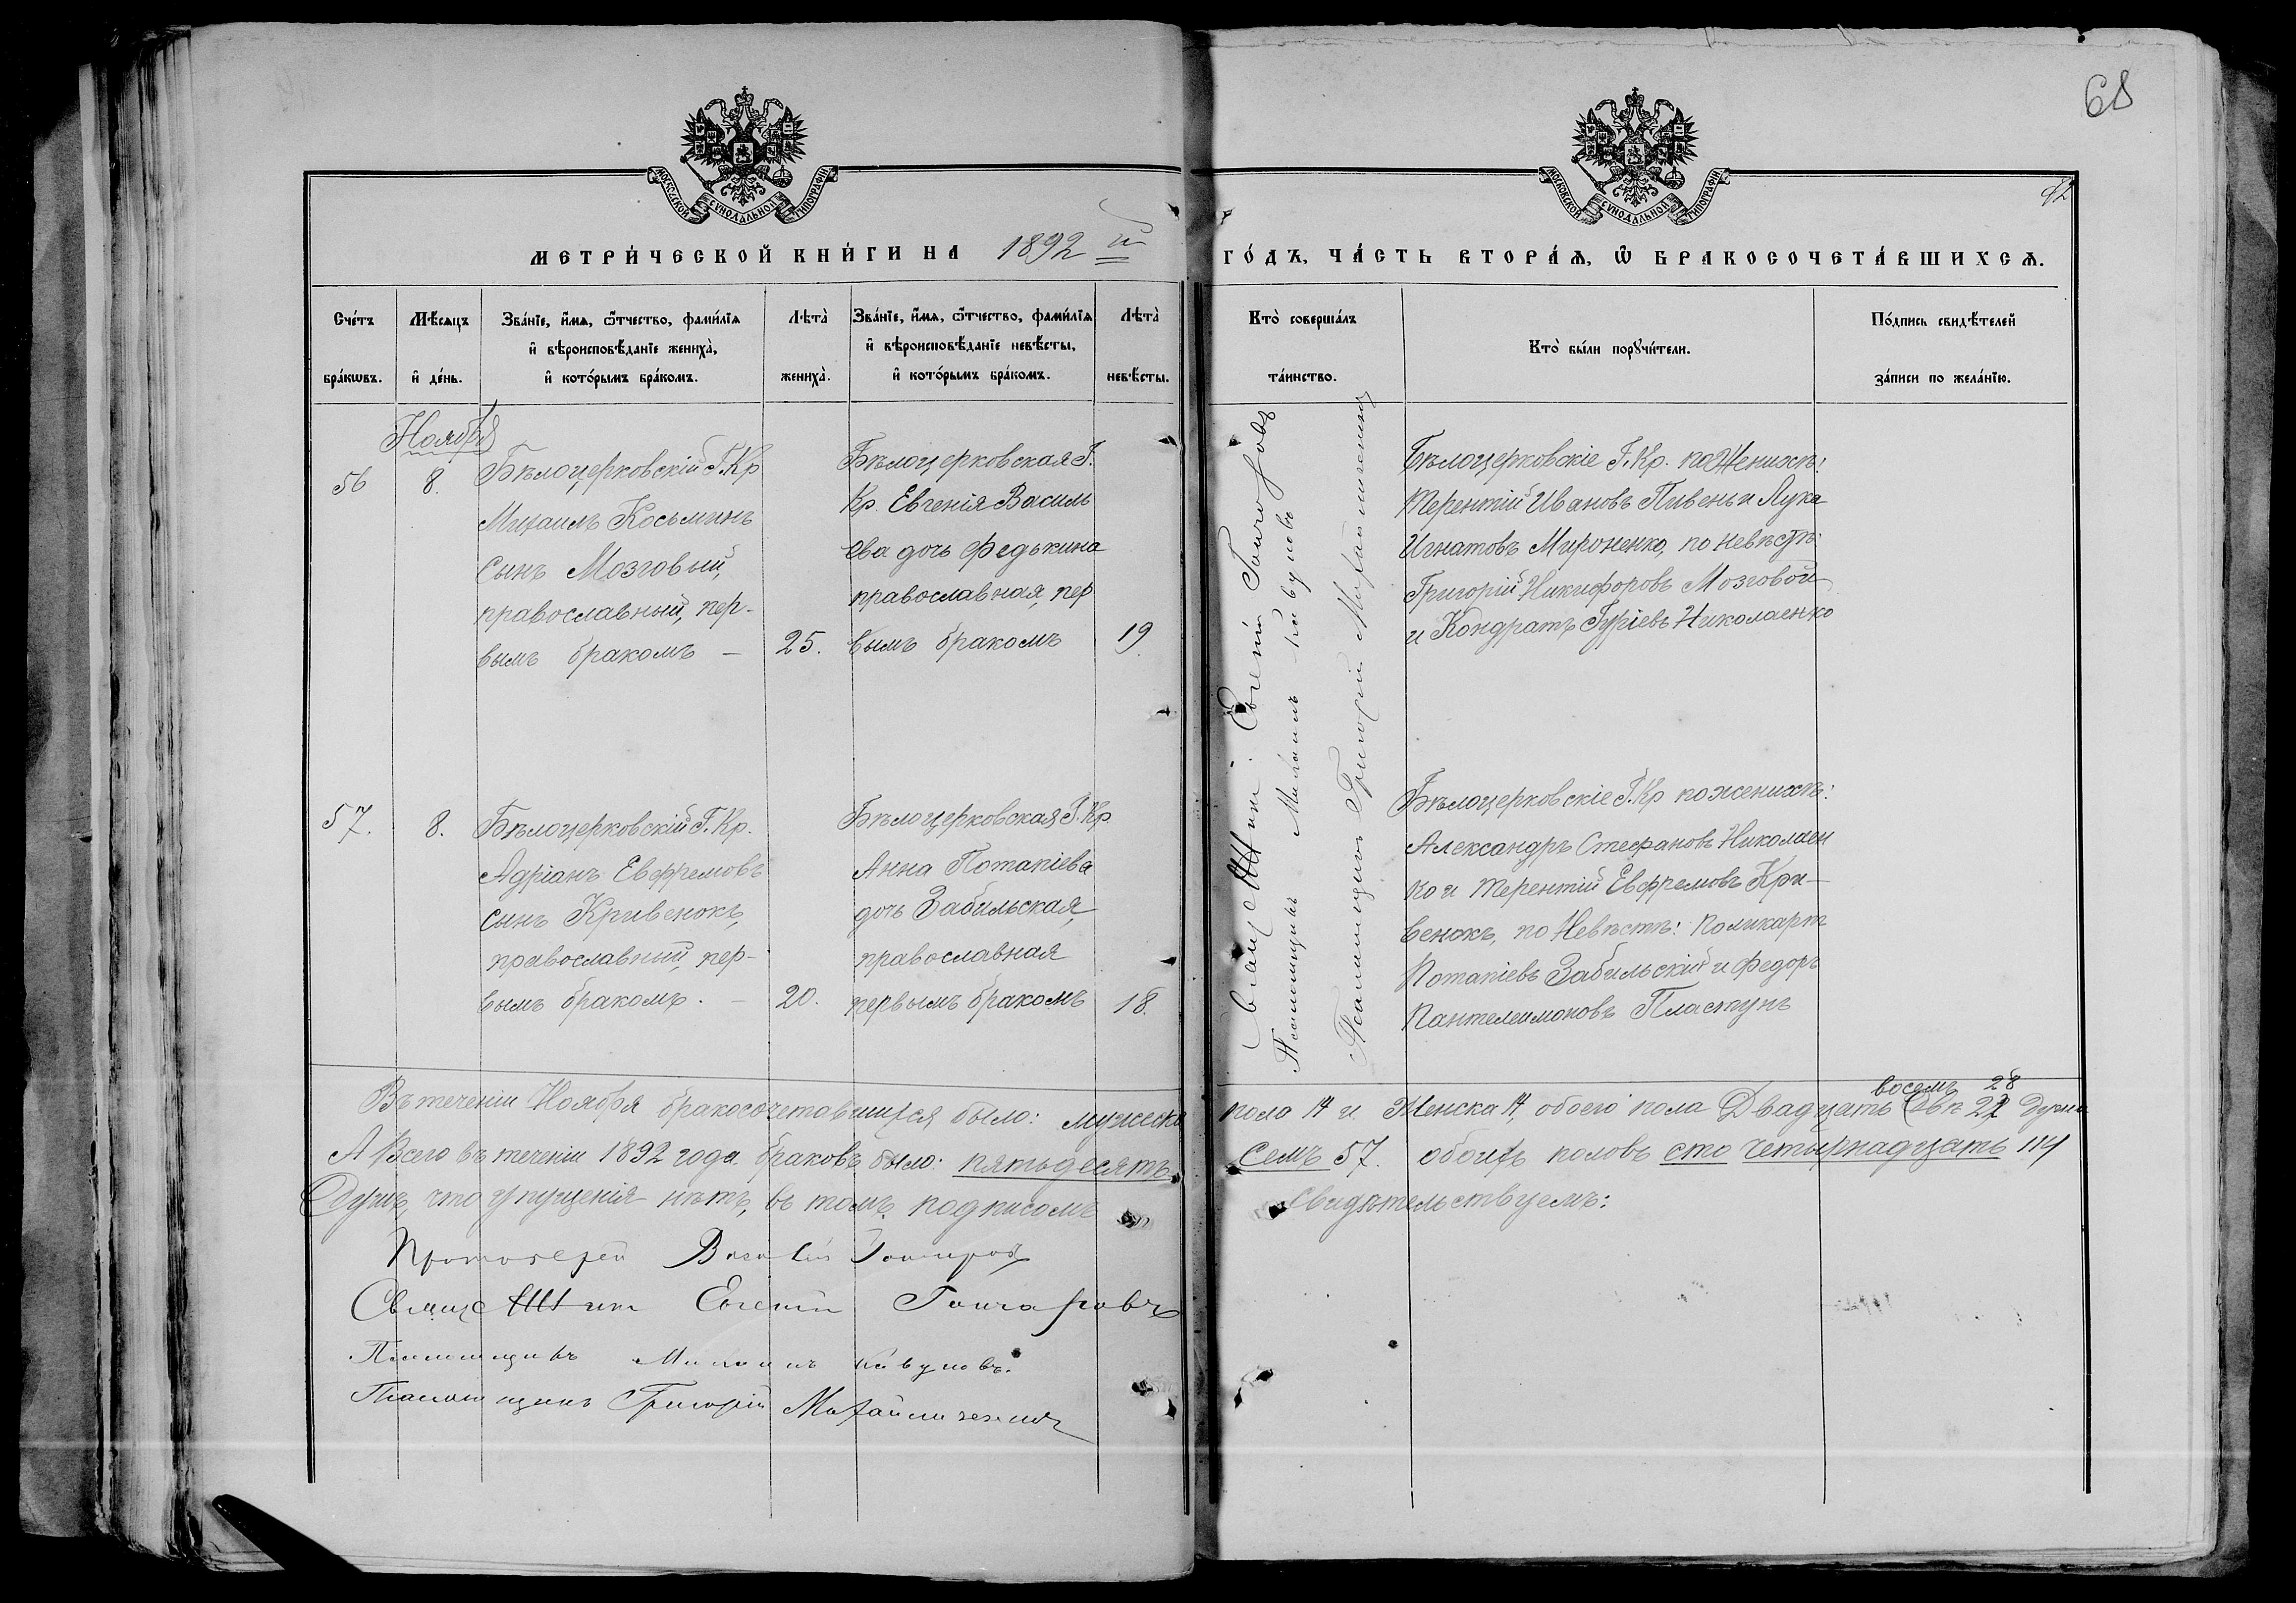 68
МОСКОВСКОЙ СѴНОДАЛЬНОЙ ТИПОГРАФІИ
МОСКОВСКОЙ СѴНОДАЛЬНОЙ ТИПОГРАФІИ
МЕТРИ́ЧЕСКОЙ КНИ́ГИ НА 1892 й
ГО́ДЪ, ЧА́СТЬ ВТОРА́Ѧ, Ѽ БРАКОСОЧЕТА́ВШИХСѦ.
Сче́тъ бра́кѡвъ.
Мѣ́сяцъ и҆ де́нь.
Зва́нїе, и҆́мѧ, ѻ҆́тчество, фами́лїѧ
и҆ вѣроисповѣ́данїе жениха̀,
и҆ кото́рымъ бра́комъ.
Лѣта̀ жениха̀.
Зва́нїе, и҆́мѧ, ѻ҆́тчество, фами́лїѧ
и҆ вѣроисповѣ́данїе невѣ́сты,
и҆ кото́рымъ бра́комъ.
Лѣта̀ невѣ́сты.
Кто̀ соверша́лъ
та́инство.
Кто̀ бы́ли порꙋчи́тели.
По́дпись свидѣ́телей
за́писи по жела́нїю.
Ноябрь
56
8.
Бѣлоцерковскій Г. Кр.
Михаилъ Косьминъ
сынъ Мозговый,
православный, пер-
вымъ бракомъ —
25.
Бѣлоцерковская Г.
Кр. Евгенія Василь
ева дочь Федькина
православная, пер
вымъ бракомъ
19.
Бѣлоцерковскіе Г. Кр. по Женихѣ:
Терентій Ивановъ Пивень и Лука
Игнатовъ Мироненко, по невѣстѣ:
Григорій Никифоровъ Мозговой
и Кондратъ Гуріевъ Николаенко
57.
8.
Бѣлоцерковскій Г. Кр.
Адріанъ Евфремовъ
сынъ Кривенокъ,
православный, пер-
вымъ бракомъ. —
20.
Бѣлоцерковская Г. Кр.
Анна Потапіева
дочь Забильская,
православная
первымъ бракомъ
18.
Священникъ Евгеній Гончаровъ
Псаломщикъ Михаилъ Ковуновъ
Псаломщикъ Григорій Михайличенко
Бѣлоцерковскіе Г. Кр по женихѣ:
Александръ Стефановъ Николаен
ко и Терентій Евфремовъ Кри-
венокъ, по Невѣстѣ: Поликарпъ
Потапіевъ Забильскій и Федоръ
Пантелеимоновъ Пластунъ
Въ теченіи Ноября бракосочетавшихся было: мужеска
пола 14 и Женска 14, обоего пола Двадцать восемь 28 душъ
А Всего въ теченіи 1892 года браковъ было: пятьдесятъ
семь 57. обоихъ половъ сто четырнадцать 114
Душъ, что упущенія нѣтъ, въ томъ подписомъ
свидѣтельствуемъ:
Протоіерей
Священникъ Евгеній Гончаровъ
Псаломщикъ Михаилъ Ковуновъ.
Псаломщикъ Григорій Михайличенко